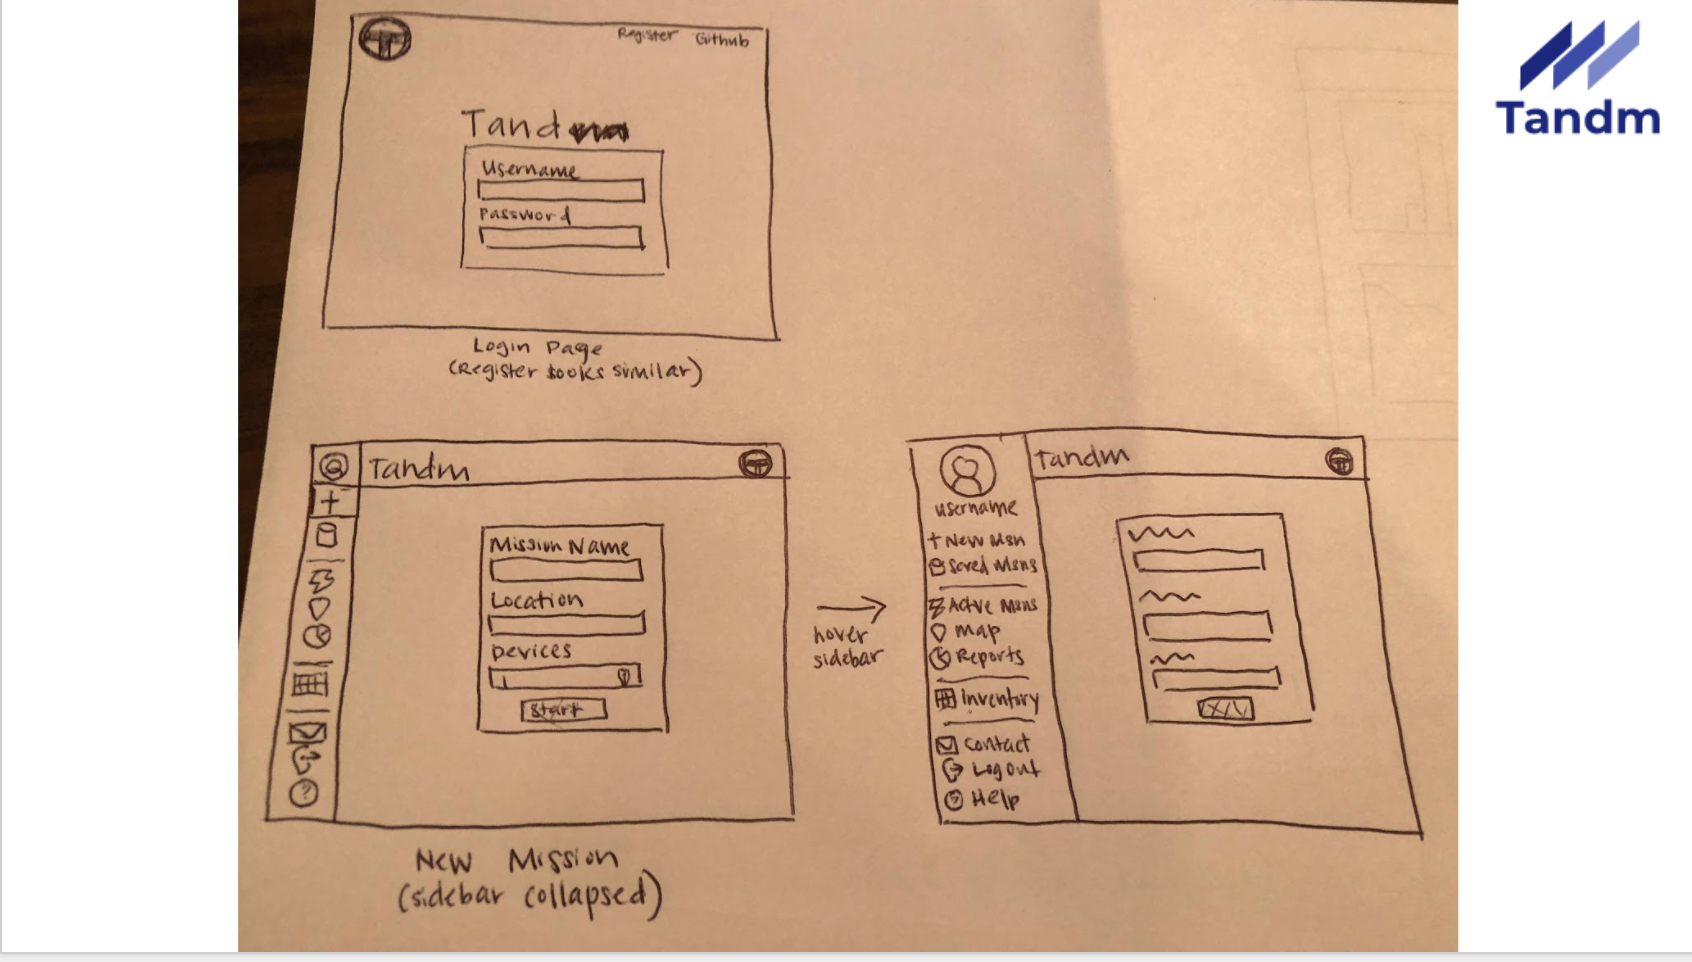 Register Github
Tandm
Tand
Username
Password
Login Page
(Register looks similar)
Tandm
Mission Name
Location
Devices
Start
New Mission
(sidebar collapsed)
hover
sidebar
Tandm
username
+ New Msn
Saved Msns
Active Msns
Map
Reports
Inventory
Contact
Log out
? Help